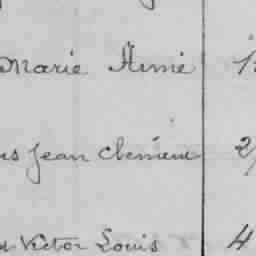 Marie Aimé
Jean Clément 2
Victor Louis 4